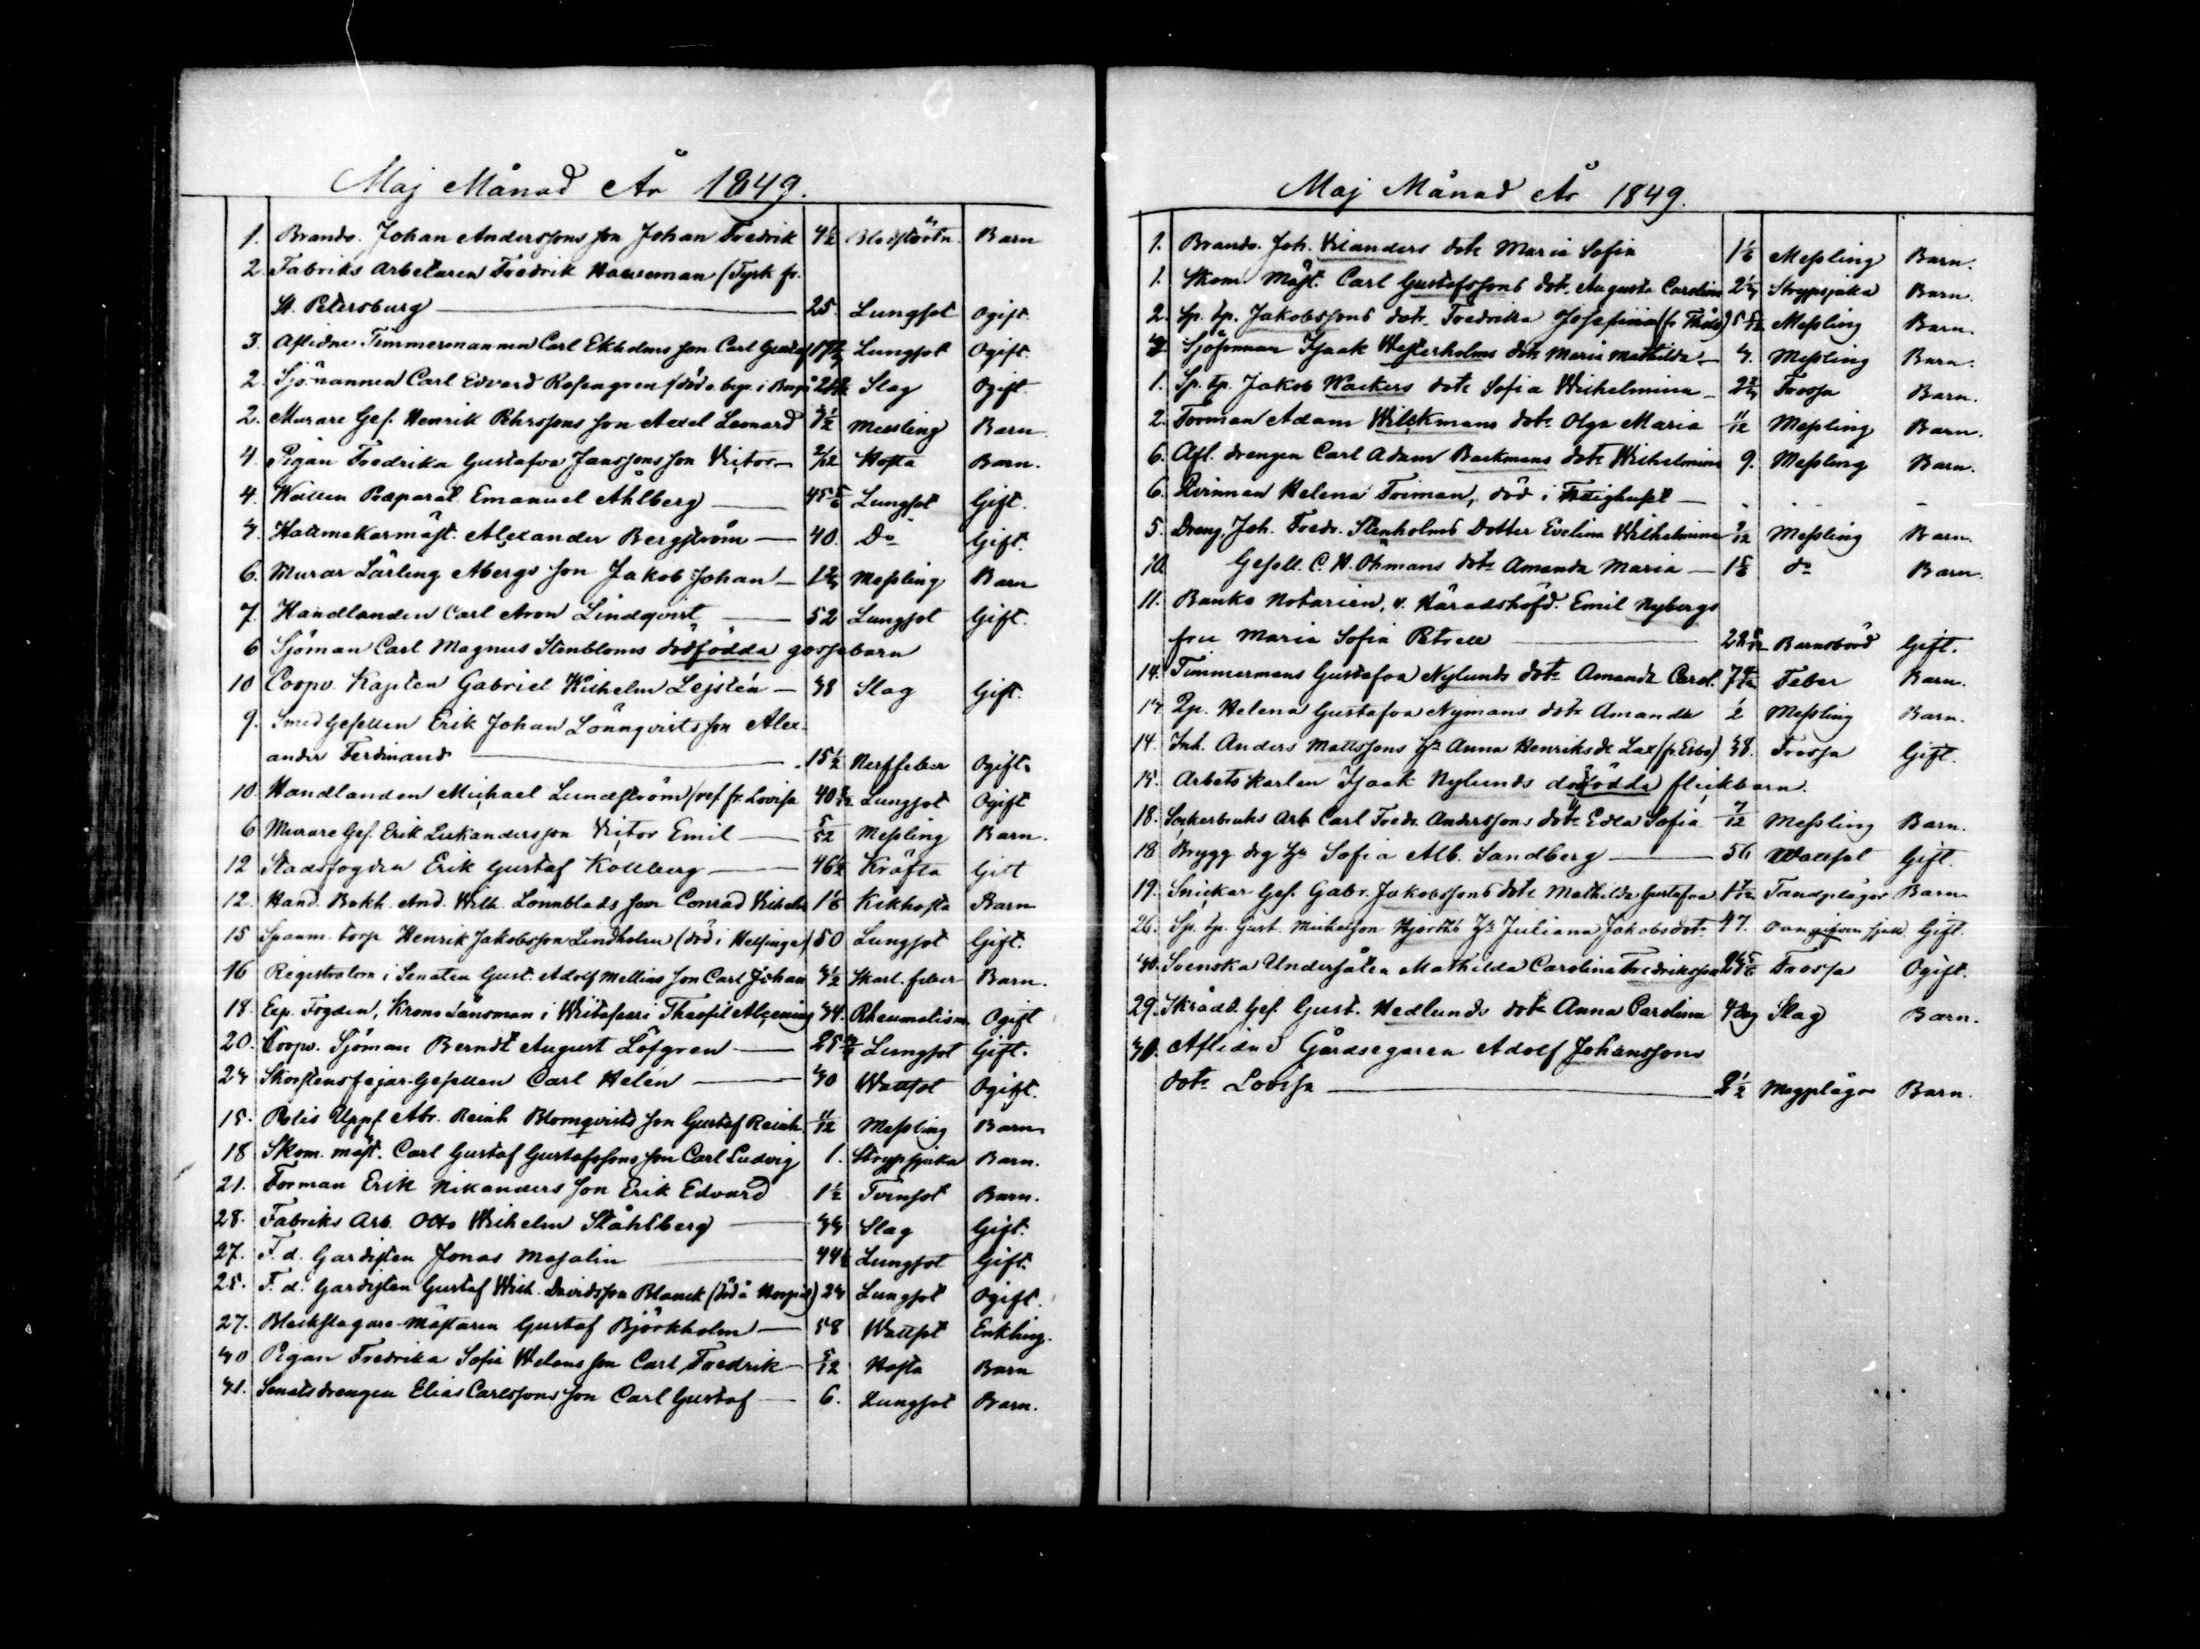 Maj Månad År 1849.
1. Brandv. Johan Anderssons son Johan Fredrik 4½ Blodstörtn. Barn
2. Fabriks Arbetaren Fredrik (Tysk fr.
St. Petersburg 25. Lungsot Ogift.
3. Aflidne Timmermannen Carl Ekholms son Carl Gustaf Lungsot Ogift.
2. Sjömannen Carl Edvard Rosengren (död o begr. i Borgå Slag Ogift.
2. Murare Ges. Henrik Pehrssons son Axel Leonard Messling Barn
4. Pigan Fredrika Gustafva Janssons son Victor 2/12 Hosta Barn.
4. Emanuel Ahlberg 45 Lungsot Gift.
3. Hattmakarmäst. Alexander Bergström 40. Do Gift.
6. Murar Lärling Åbergs son Jakob Johan Messling Barn
7. Handlanden Carl Aron Lindqvist 52 Lungsot Gift.
6 Sjöman Carl Magnus Stenbloms dödfödda gossebarn
10 Coopv. Kapten Gabriel Wilhelm Lejstén 38 Slag Gift.
9. Smed Gesellen Erik Johan Lönnqvists son Alex-
ander Ferdinand 15½ Nerffeber Ogift.
10. Handlanden Michael Lundström (ref fr. Lovisa 40 Lungsot Ogift
6 Murare Ges. Erik son Victor Emil 5/52 Messling Barn.
12 Stadsfogden Erik Gustaf Kollberg 46½ Kräfta Gift
12. Hand. Bokh. And. Wilh. Lönnblads son Conrad Vilhelm 1 Kikhosta Barn
15 Spanm. torp Henrik Jakobsson Lindholm (död i Helsinge) 50 Lungsot Gift.
16 Registratorn i Senaten Gust. Adolf Mellins son Carl Johan 3½ Skarl. feber Barn.
18. Exp. Fogden, Krono Länsman i Theofil 34. Rheumatism Ogift
20. Coopv. Sjöman Berndt August Löfgren 25 Lungsot Gift.
23 Skorstensfejar-Gesellen Carl Helén 30 Wattsot Ogift.
15. Polis Upps. Abr. Reinh Blomqvists son Gustaf Reinh. 11/12 Messling Barn.
18 Skom. mäst. Carl Gustaf Gustafssons son Carl Ludvig 1. Strypsjuka Barn.
21. Forman Erik Nikanders son Erik Edvard 1½ Barn.
28. Fabriks Arb. Otto Wilhelm Ståhlberg 33 Slag Gift.
27. F. d. Gardisten Jonas Masalin 44½ Lungsot Gift.
25. F. d. Gardisten Gustaf Wilh. Davidsson Blanck (död å Hospit) 23 Lungsot Ogift.
27. Bleckslagare-Mästaren Gustaf Björkholm 58 Wattsot Enkling.
30 Pigan Fredrika Sofia son Carl Fredrik 5/12 Hosta Barn
31. Senats drengen Elias Carlssons son Carl Gustaf 6. Lungsot Barn.
Maj Månad År 1849.
1. Brandv. Joh. dotr Maria Sofia Messling Barn.
1. Skom. Mäst. Carl Gustafssons dot. Augusta Carolina Strypsjuka Barn.
2. Sp. tp. Jakobssons dotr Fredrika Josefina Messling Barn.
3. Isaak Westerholms dotr Maria Mathilda 3. Messling Barn.
1. Sp. tp. Jakob Wackers dotr Sofia Wilhelmina Frossa Barn.
2. Forman Adam Wilckmans dotr Olga Maria 11/12 Messling Barn.
6. Afl. drengen Carl Adam Backmans dotr Wilhelmina 9. Messling Barn.
6. Qvinnan Helena Froiman, död i Fattighuset
5. Dreng. Joh. Fredr. Stenholms Dotter Evelina Wilhelmina Messling Barn.
10. Gesell. C. H. Öhmans dotr Amanda Maria do Barn.
11. Banko Notarien, v. Häradshöfd. Emil Nybergs
fru Maria Sofia Petrell Barnsbörd Gift.
14. Timmermans Gustafva Nylunds dotr Amanda Carol. Feber Barn.
13 Qp. Helena Gustafva Nymans dotr Amanda ½ Messling Barn.
14. Inh. Anders Mattssons Hu Anna Henriksdr Lax (fr. Esbo) 38. Frossa Gift.
15. Arbetskarlen Isaak Nylunds dödfödda flickbarn.
18. Sockerbruks Arb Carl Fredr. Anderssons dotr Edla Sofia 7/12 Messling Barn.
18 Brygg drg Hu Sofia Alb. Sandberg 56 Wattsot Gift.
19. Snickar Ges. Gabr. Jakobssons dotr Mathilda Gustafva Tandplågor Barn
26. Sp. tp. Gust. Michelsson Hjorths Hu Juliana Jakobsdotr 47. Gift.
30. Svenska Undersåten Mathilda Carolina Fredriksson Frossa Ogift.
29. Skrädd. Ges. Gust. Hedlunds dotr Anna Carolina 4 dag Slag Barn.
31. Aflidne Gårdsegaren Adolf Johanssons
dotr Lovisa 2½ Magplågor Barn.